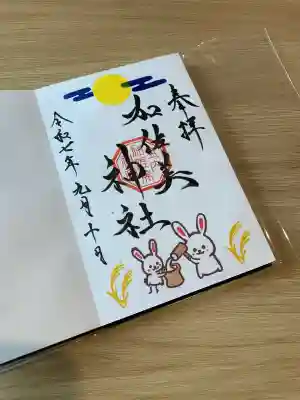 奉拝
加佐美神社
令和七年九月十日